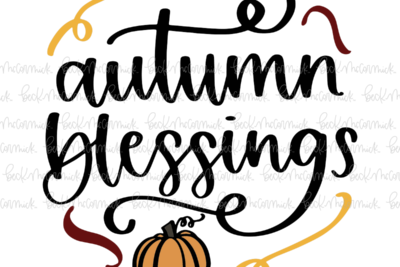 autumn
blessings